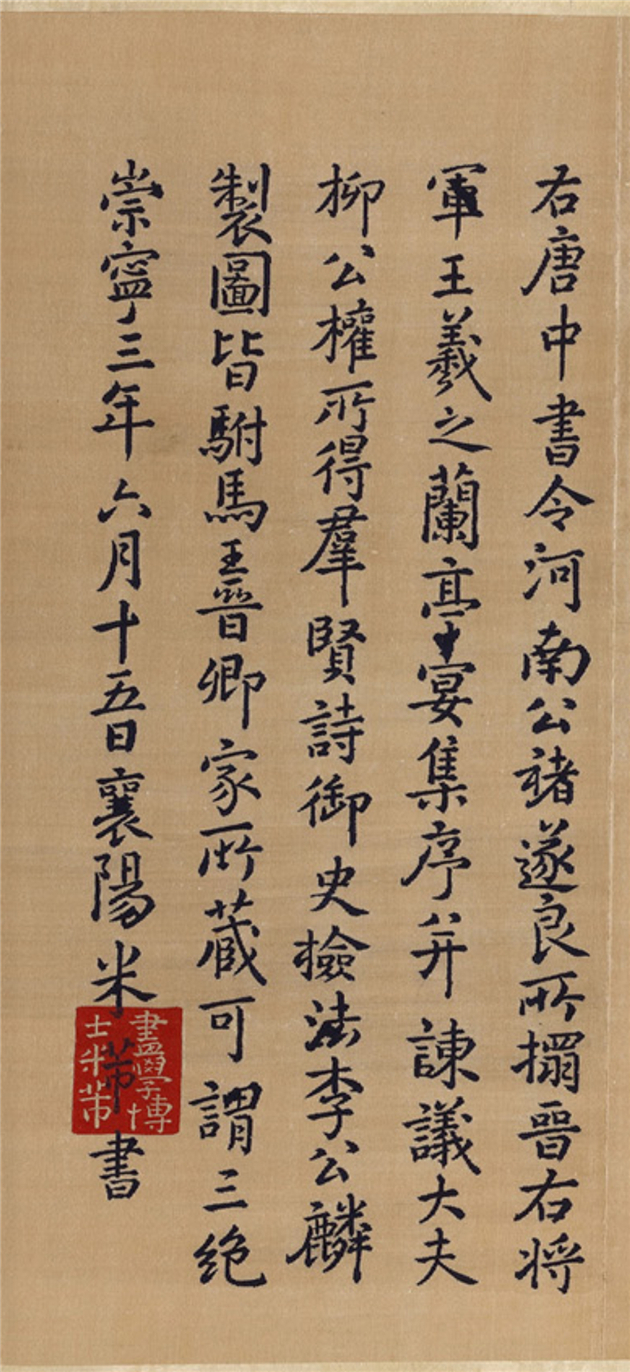 右唐中書令河南公褚遂良所搨晉右将
軍王羲之蘭亭宴集序并諫議大夫
柳公權所得羣賢詩御史撿法李公麟
製圖皆駙馬王晉卿家所蔵可謂三絶
崇寧三年六月十五日襄陽米芾書
書學博
士米芾